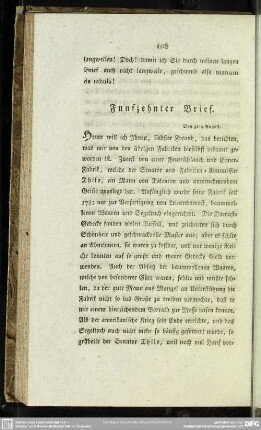 106
langweilen! Doch! damit ich Sie durch meinen langen
Brief auch nicht langweile, geschwind also manum
de tabula!
Funfzehnter Brief.
Heute will ich Ihnen, liebster Freund, das berichten,
was mir von den übrigen Fabriken hieselbst bekannt ge-
worden ist. Zuerst von einer Feuerschlauch und
Fabrik, welche der Senator und Fabriken-Kommissair
Thilo, ein Mann von Talenten und unternehmendem
Geiste angelegt hat. Anfänglich wurde seine Fabrik seit
1781 nur zur Verfertigung von Leinendamast, baumwol-
lenen Waaren und Segeltuch eingerichtet. Die Damast-
Gedecke fanden vielen Beifall, und zeichneten sich durch
Schönheit und geschmackvolle Muster aus; aber es fehlte
an Abnehmern, sie waren zu kostbar, und nur wenige Rei-
che konnten auf so große und theure Gedecke Geld ver-
wenden. Auch der Absatz der baumwollenen Waaren,
welche von besonderer Güte waren, fehlte und mißte feh-
len, da der gute Mann aus Mangel an Unterstützung die
Fabrik nicht so ins Große zu treiben vermochte, daß er
mit einem hinreichenden Vorrath zur Messe reisen konnte.
Als der amerikanische Krieg sein Ende erreichte, und das
Segeltuch auch nicht mehr so häufig gefordert wurde, so
grübelte der Senator Thilo, weil noch viel Hanf vor-